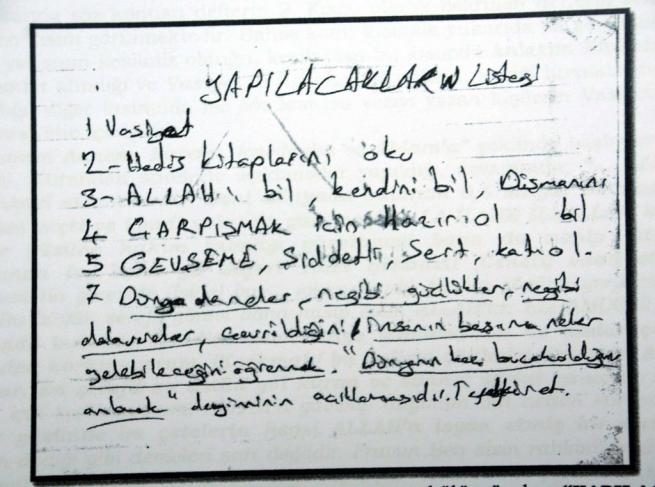 YAPILACAKLARIN Listesi
1 Vasiyet
2- Hadis kitaplarını oku
3- ALLAHı bil, kendini bil, Düsmanını
4. ÇARPISMAK icin Hazır ol bil
5 GEVSEME, Siddetli, Sert, katı ol.
7 Dünya daneler, negibi güçlükler, negibi
dalavereler, cevrildiğini, insanın basına neler
gelebileceğini öğrenmek. "Dünyanın kac bucak olduğunu
anlamak" deyiminin acıklamasıdır. Tefekkür et.